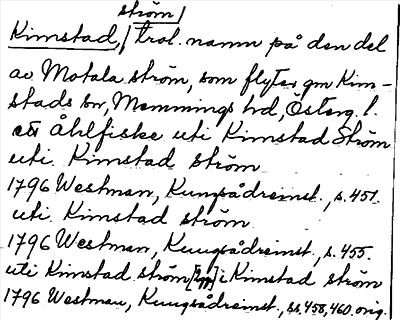 ström/
Kimstad,/ trol. namn på den del
av Motala ström, som flyter gm Kim-
stads sn, Memmings hd, Österg. l.
ett åhlfiske uti Kimstad Ström
uti Kimstad ström
1796 Westman, Kungsådreinst., s. 451.
uti Kimstad ström
1796 Westman, Kungsådreinst., s. 455.
uti Kimstad ström i Kimstad ström
1796 Westman, Kungsådreinst., ss. 458, 460. orig.